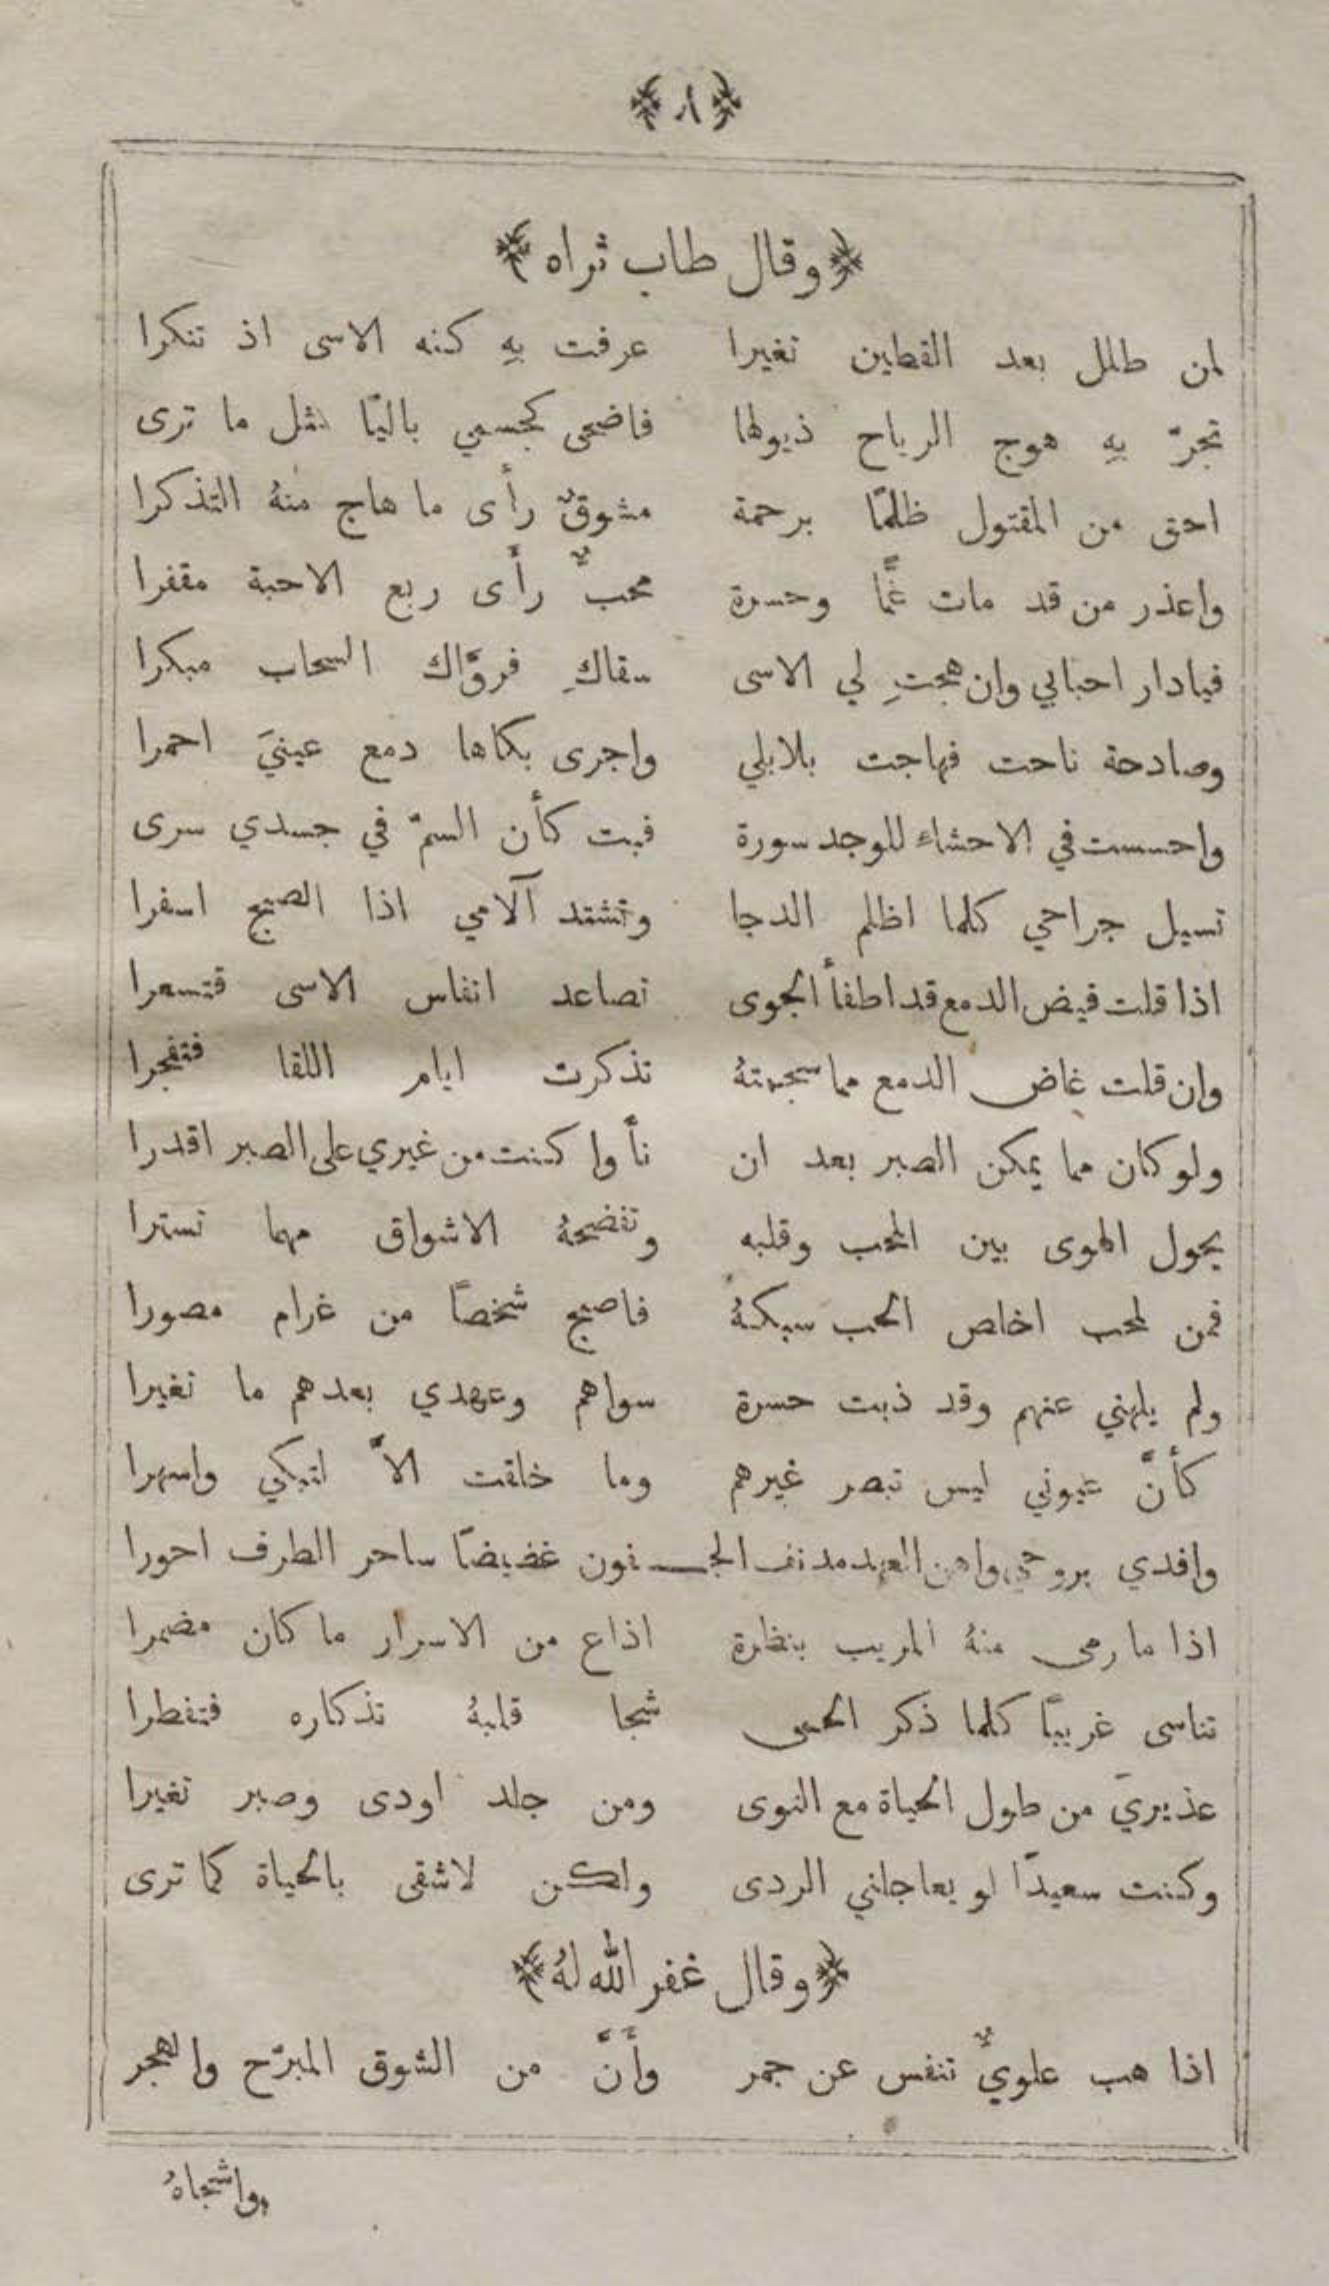 ﴿٨﴾
﴿وقال طاب ثراه﴾
لمن طلل بعد القطين تغيرا عرفت بهِ كنه الاسى اذ تنكرا
تجرّ بهِ هوج الرياح ذيولها فاضحى كجسمي باليًا مثل ما ترى
احق من المقتول ظلمًا برحمة مشوقٌ رأى ما هاج منهُ التذكرا
واعذر من قد مات غمًّا وحسرة محبٌّ رأى ربع الاحبة مقفرا
فيادار احبابي وان هجتِ لي الاسى سقاكِ فروَّاك السحاب مبكرا
وصادحة ناحت فهاجت بلابلي واجرى بكاها دمع عينيَ احمرا
واحسست في الاحشاء للوجد سورة فبت كأن السمّ في جسدي سرى
تسيل جراحي كلما اظلم الدجا وتشتد آلامي اذا الصبح اسفرا
اذا قلت فيض الدمع قد اطفأ الجوى تصاعد انفاس الاسى فتسعرا
وان قلت غاض الدمع مما سجمتهُ تذكرت ايام اللقا فتفجرا
ولو كان مما يمكن الصبر بعد ان نأوا كنت من غيري على الصبر اقدرا
يجول الهوى بين المحب وقلبه وتفضحهُ الاشواق مهما تسترا
فمن لمحب اخلص الحب سبكهُ فاصبح شخصًا من غرام مصورا
ولم يلهني عنهم وقد ذبت حسرة سواهم وعهدي بعدهم ما تغيرا
كأنَّ عيوني ليس تبصر غيرهم وما خلقت الاَّ لتبكي واسهرا
وافدي بروحي واهن العهد مدنف الجـــفون غضيضًا ساحر الطرف احورا
اذا ما رمى منهُ المريب بنظرة اذاع من الاسرار ما كان مضمرا
تناسى غريبًا كلما ذكر الحمى شجا قلبهُ تذكاره فتفطرا
عذيريَ من طول الحياة مع النوى ومن جلد اودى وصبر تغيرا
وكنت سعيدًا لو يعاجلني الردى ولكن لاشقى بالحياة كما ترى
﴿وقال غفر الله لهُ﴾
اذا هب علويٌّ تنفس عن جمر وأنَّ من الشوق المبرّح والهجر
واشجاهُ